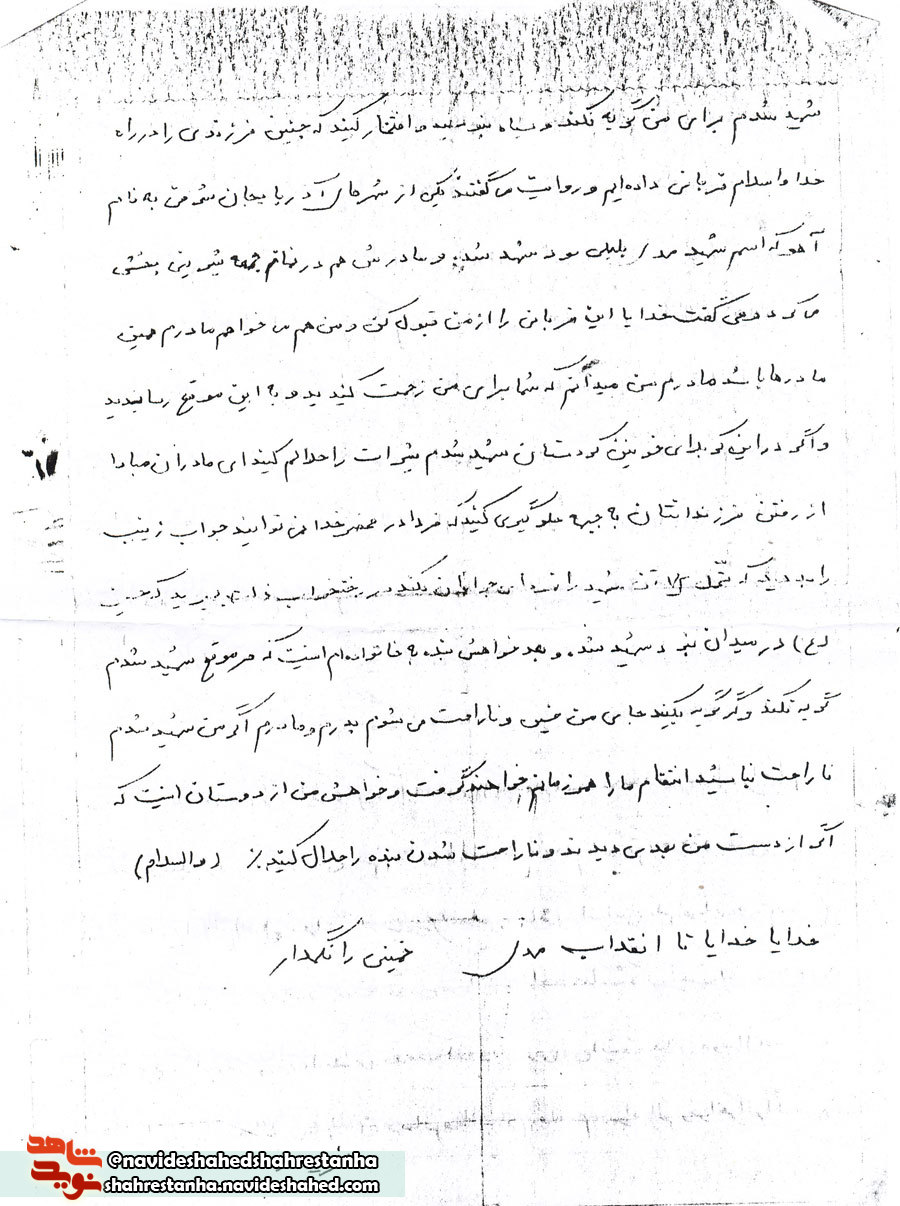 شهید شدم برای من گریه نکنند و سیاه نپوشید و افتخار کنید که چنین فرزندی را در راه
خدا و اسلام قربانی داده‌ایم و روایت می‌گفتند یکی از شهرهای آذربایجان شرقی به نام
آهو که اسم شهید مدد بللی بود شهید شد. و مادرش هم در نماز جمعه شیرینی پخش
می‌کرد و می گفت خدایا این قربانی را از من قبول کن و من هم می خواهم مادرم همین
مادرها باشد مادرم من میدانم که شما برای من زحمت کشیدید و به این موقع رسانیدید
و اگر در این کربلای خونین کردستان شهید شدم شیرت را حلالم کنید ای مادران مبادا
از رفتن فرزندانتان به جبهه جلوگیری کنید که فردا در محضر خدا نمی توانید جواب زینب
را بدهید که تحمل ۷۲ تن شهید را ای جوانان نکند در رختخواب ذلت بمیرید که حسین
(ع) در میدان نبرد شهید شد. و بعد خواهش بنده به خانواده‌ام اینست که هر موقع شهید شدم
گریه نکنند و گر گریه بکنید من خیلی ناراحت می شوم پدرم و مادرم اگر من شهید شدم
ناراحت نباشید انتقام ما را همرزمانم خواهند گرفت و خواهش من از دوستان اینست که
اگر از دست من بدی دیدند و ناراحت شدن بنده را حلال کنید ٪ (والسلام)
خدایا خدایا تا انقلاب مهدی خمینی را نگهدار
نوید شاهد
@navideshahedshahrestanha
shahrestanha.navideshahed.com